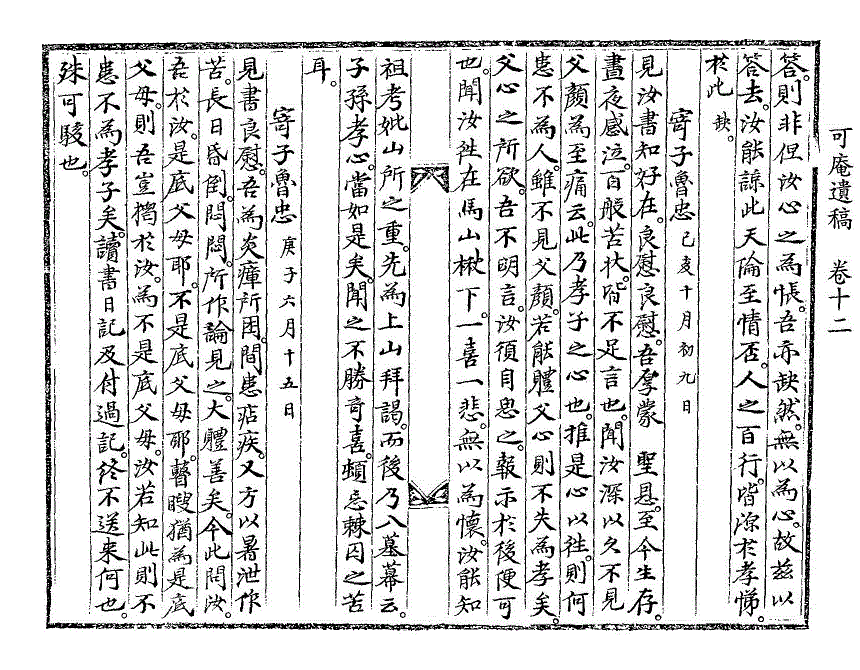 可庵遺稿 卷十二
答。則非但汝心之爲悵。吾亦缺然。無以爲心。故玆以
答去。汝能諒此天倫至情否。人之百行。皆源於孝悌。
於此 缺。
寄子魯忠 己亥十月初九日
見汝書知好在。良慰良慰。吾厚蒙 聖恩。至今生存。
晝夜感泣。百般苦狀。皆不足言也。聞汝深以久不見
父顏爲至痛云。此乃孝子之心也。推是心以往。則何
患不爲人。雖不見父顏。若能體父心則不失爲孝矣。
父心之所欲。吾不明言。汝須自思之。報示於後便可
也。聞汝往在馬山楸下。一喜一悲。無以爲懷。汝能知
祖考妣山所之重。先爲上山拜謁。而後乃入墓幕云。
子孫孝心。當如是矣。聞之不勝奇喜。頓忘棘囚之苦
耳。
寄子魯忠 庚子六月十五日
見書良慰。吾爲炎瘴所困。間患痁疾。又方以暑泄作
苦。長日昏倒。悶悶。所作論見之。大體善矣。今此問汝。
吾於汝。是底父母耶。不是底父母耶。瞽瞍猶爲是底
父母。則吾豈獨於汝。爲不是底父母。汝若知此則不
患不爲孝子矣。讀書日記及付過記。終不送來何也。
殊可駭也。